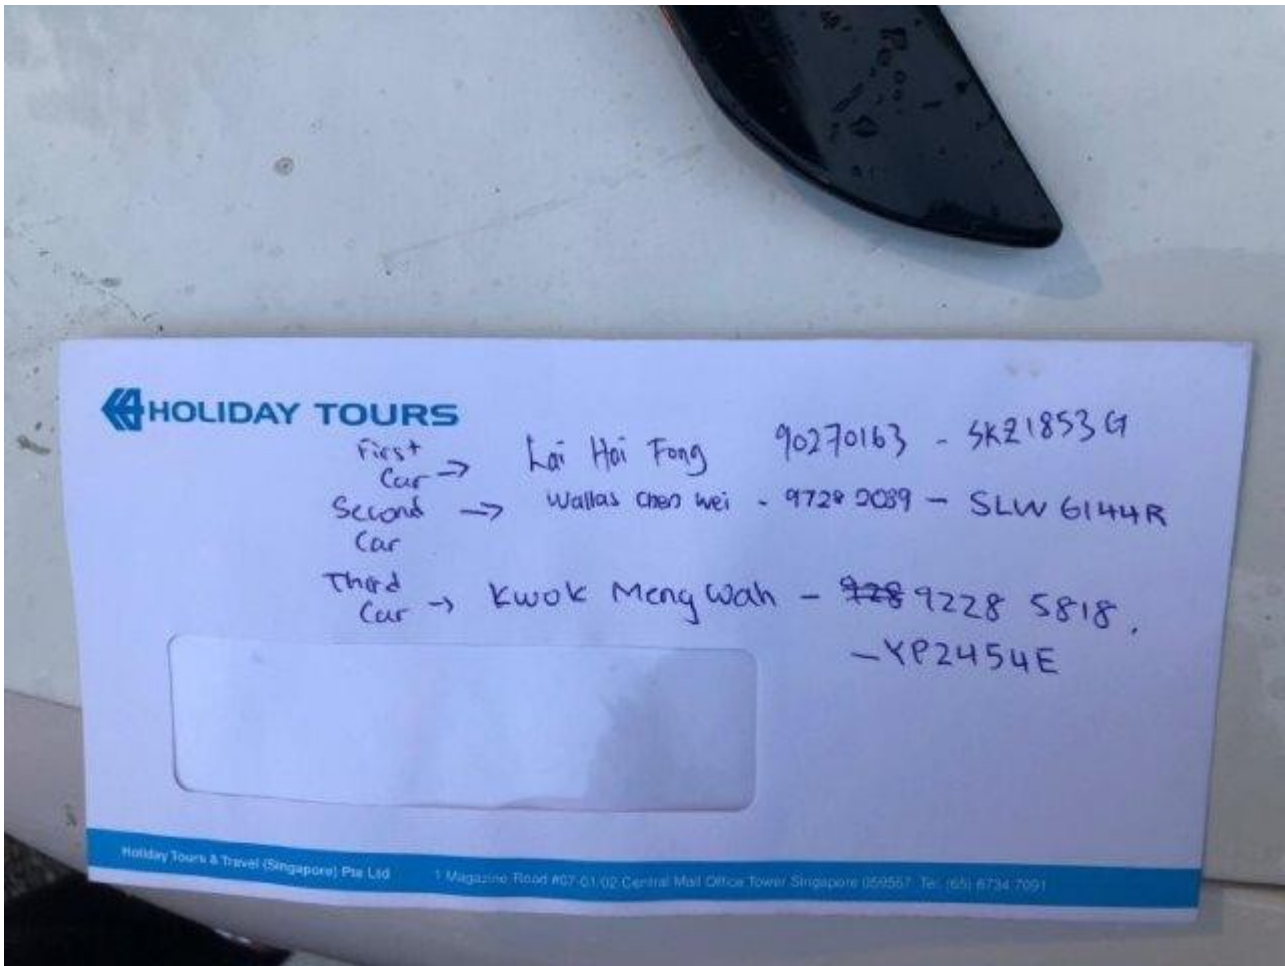 HOLIDAY TOURS
First Car → Lai Hai Fong 90270163 - SKZ1853G
Second Car → Wallas Chen Wei - 9728 2089 - SLW6144R
Third Car → Kwok Meng Wah - 928 9228 5818.
- YP2454E
Holiday Tours & Travel (Singapore) Pte Ltd 1 Magazine Road #07-01/02 Central Mall Office Tower Singapore 059567 Tel: (65) 6734 7091